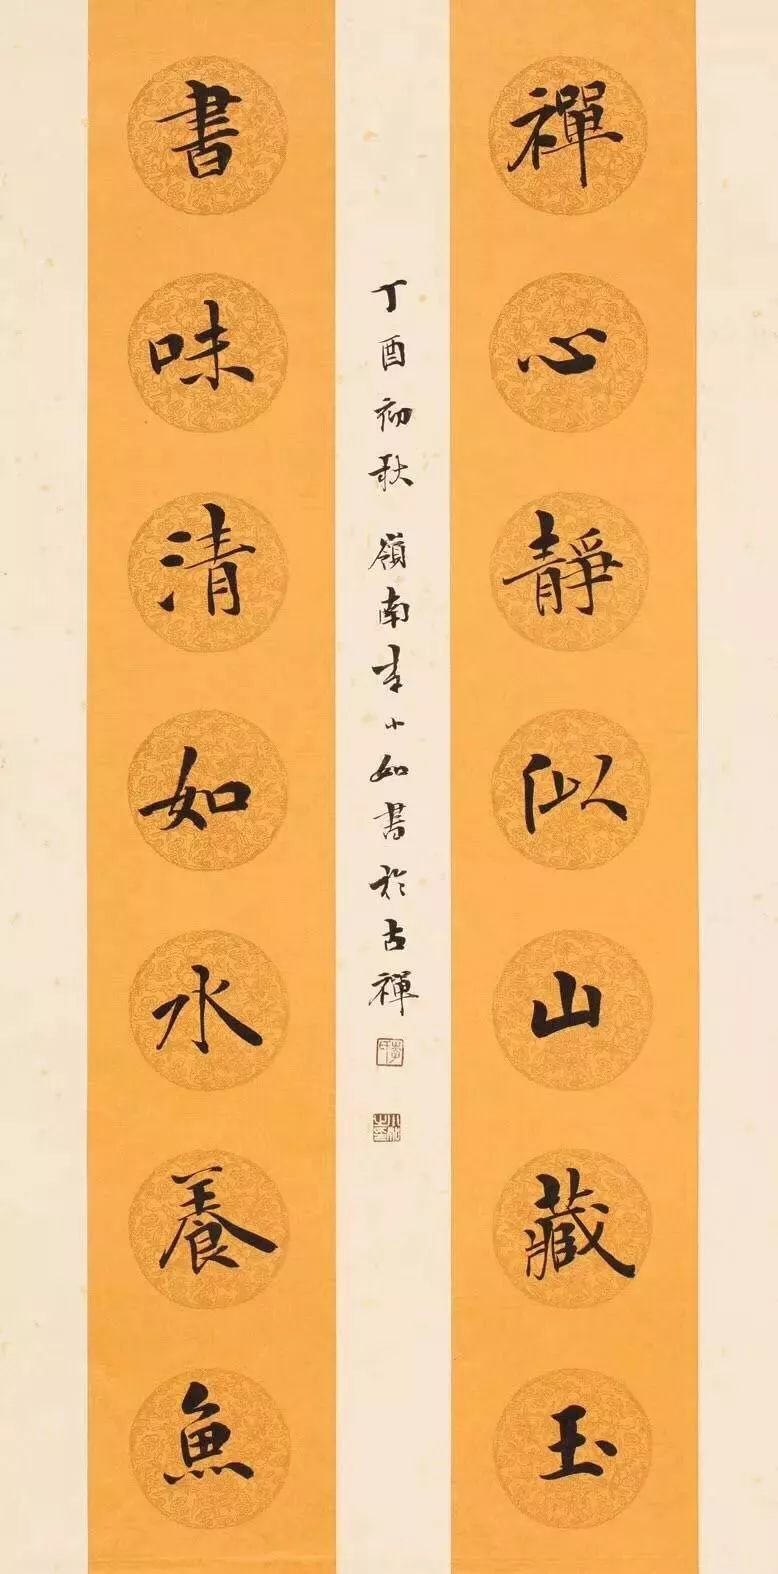 禪心靜似山藏玉
書味清如水養魚
丁酉初秋嶺南李小如書於古禪